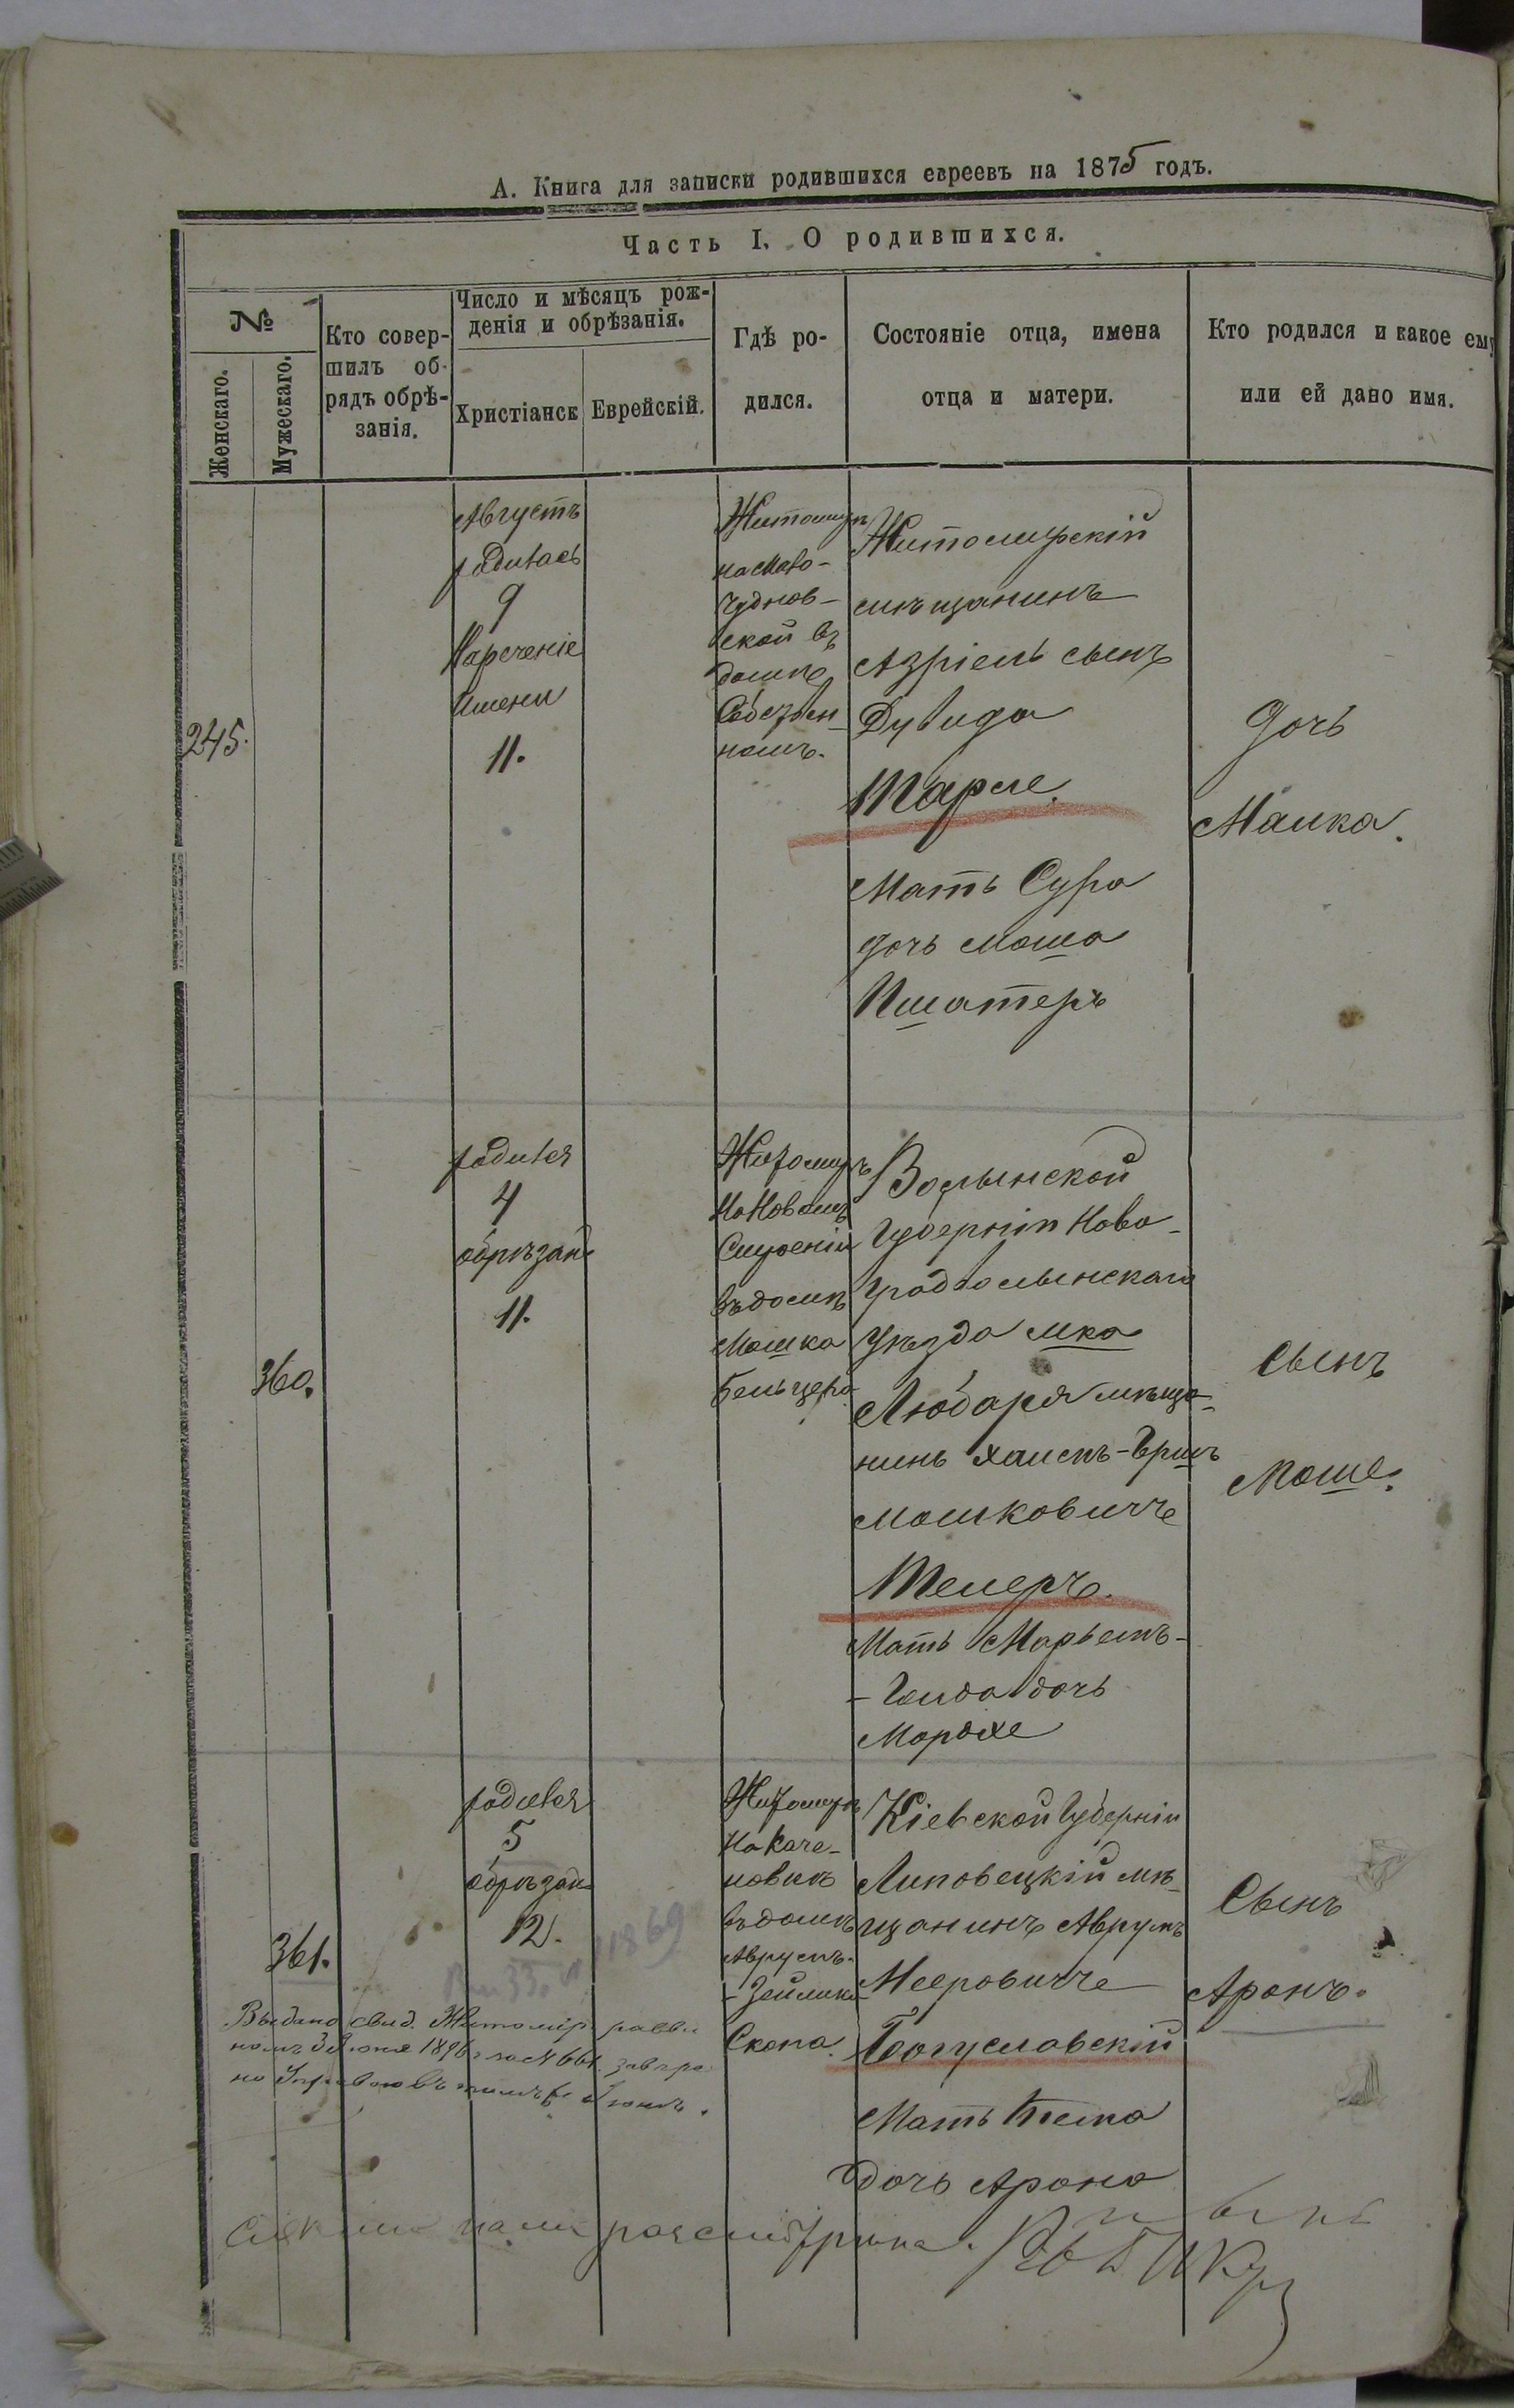 А. Книга для записки родившихся евреевъ на 1875 годъ.
Часть I. О родившихся.
№
Женскаго.
Мужескаго.
Кто совер-
шилъ об-
рядъ обрѣ-
занія.
Число и мѣсяцъ рож-
денія и обрѣзанія.
Христіанск
Еврейскій.
Гдѣ ро-
дился.
Состояніе отца, имена
отца и матери.
Кто родился и какое ему
или ей дано имя.
245.
Августъ
родилась
9
Нареченіе
имени
11.
Житомиръ
на Мало-
Чуднов-
ской въ
домѣ
Собствен-
номъ.
Житомирскій
мѣщанинъ
Азріель сынъ
Дувида
Мать Сура
дочь Моша
Дочь
Малка.
360.
родился
4
обрѣзанъ
11.
Житомиръ
На Новомъ
Строеніи
въ домѣ
Мошка
Бельцера
Волынской
Губерніи Ново-
градволынскаго
Уѣзда мка
Любаря мѣща-
нинъ Хаимъ-Гершъ
Мошковичъ
Мать Марьемъ-
-Голда дочь
Мордхе
Сынъ
Моше.
361.
родился
5
обрѣзанъ
12.
Житомиръ
На Каче-
новкѣ
въ домѣ
Аврумъ-
-Зейлика
Скопа.
Кіевской Губерніи
Липовецкій мѣ-
щанинъ Аврумъ
Мееровичъ
Богуславскій
Мать
дочь Арона
Сынъ
Аронъ.
1869
Выдано свид. Житомір. равви-
номъ 3 Іюня 1896 г за № 661.